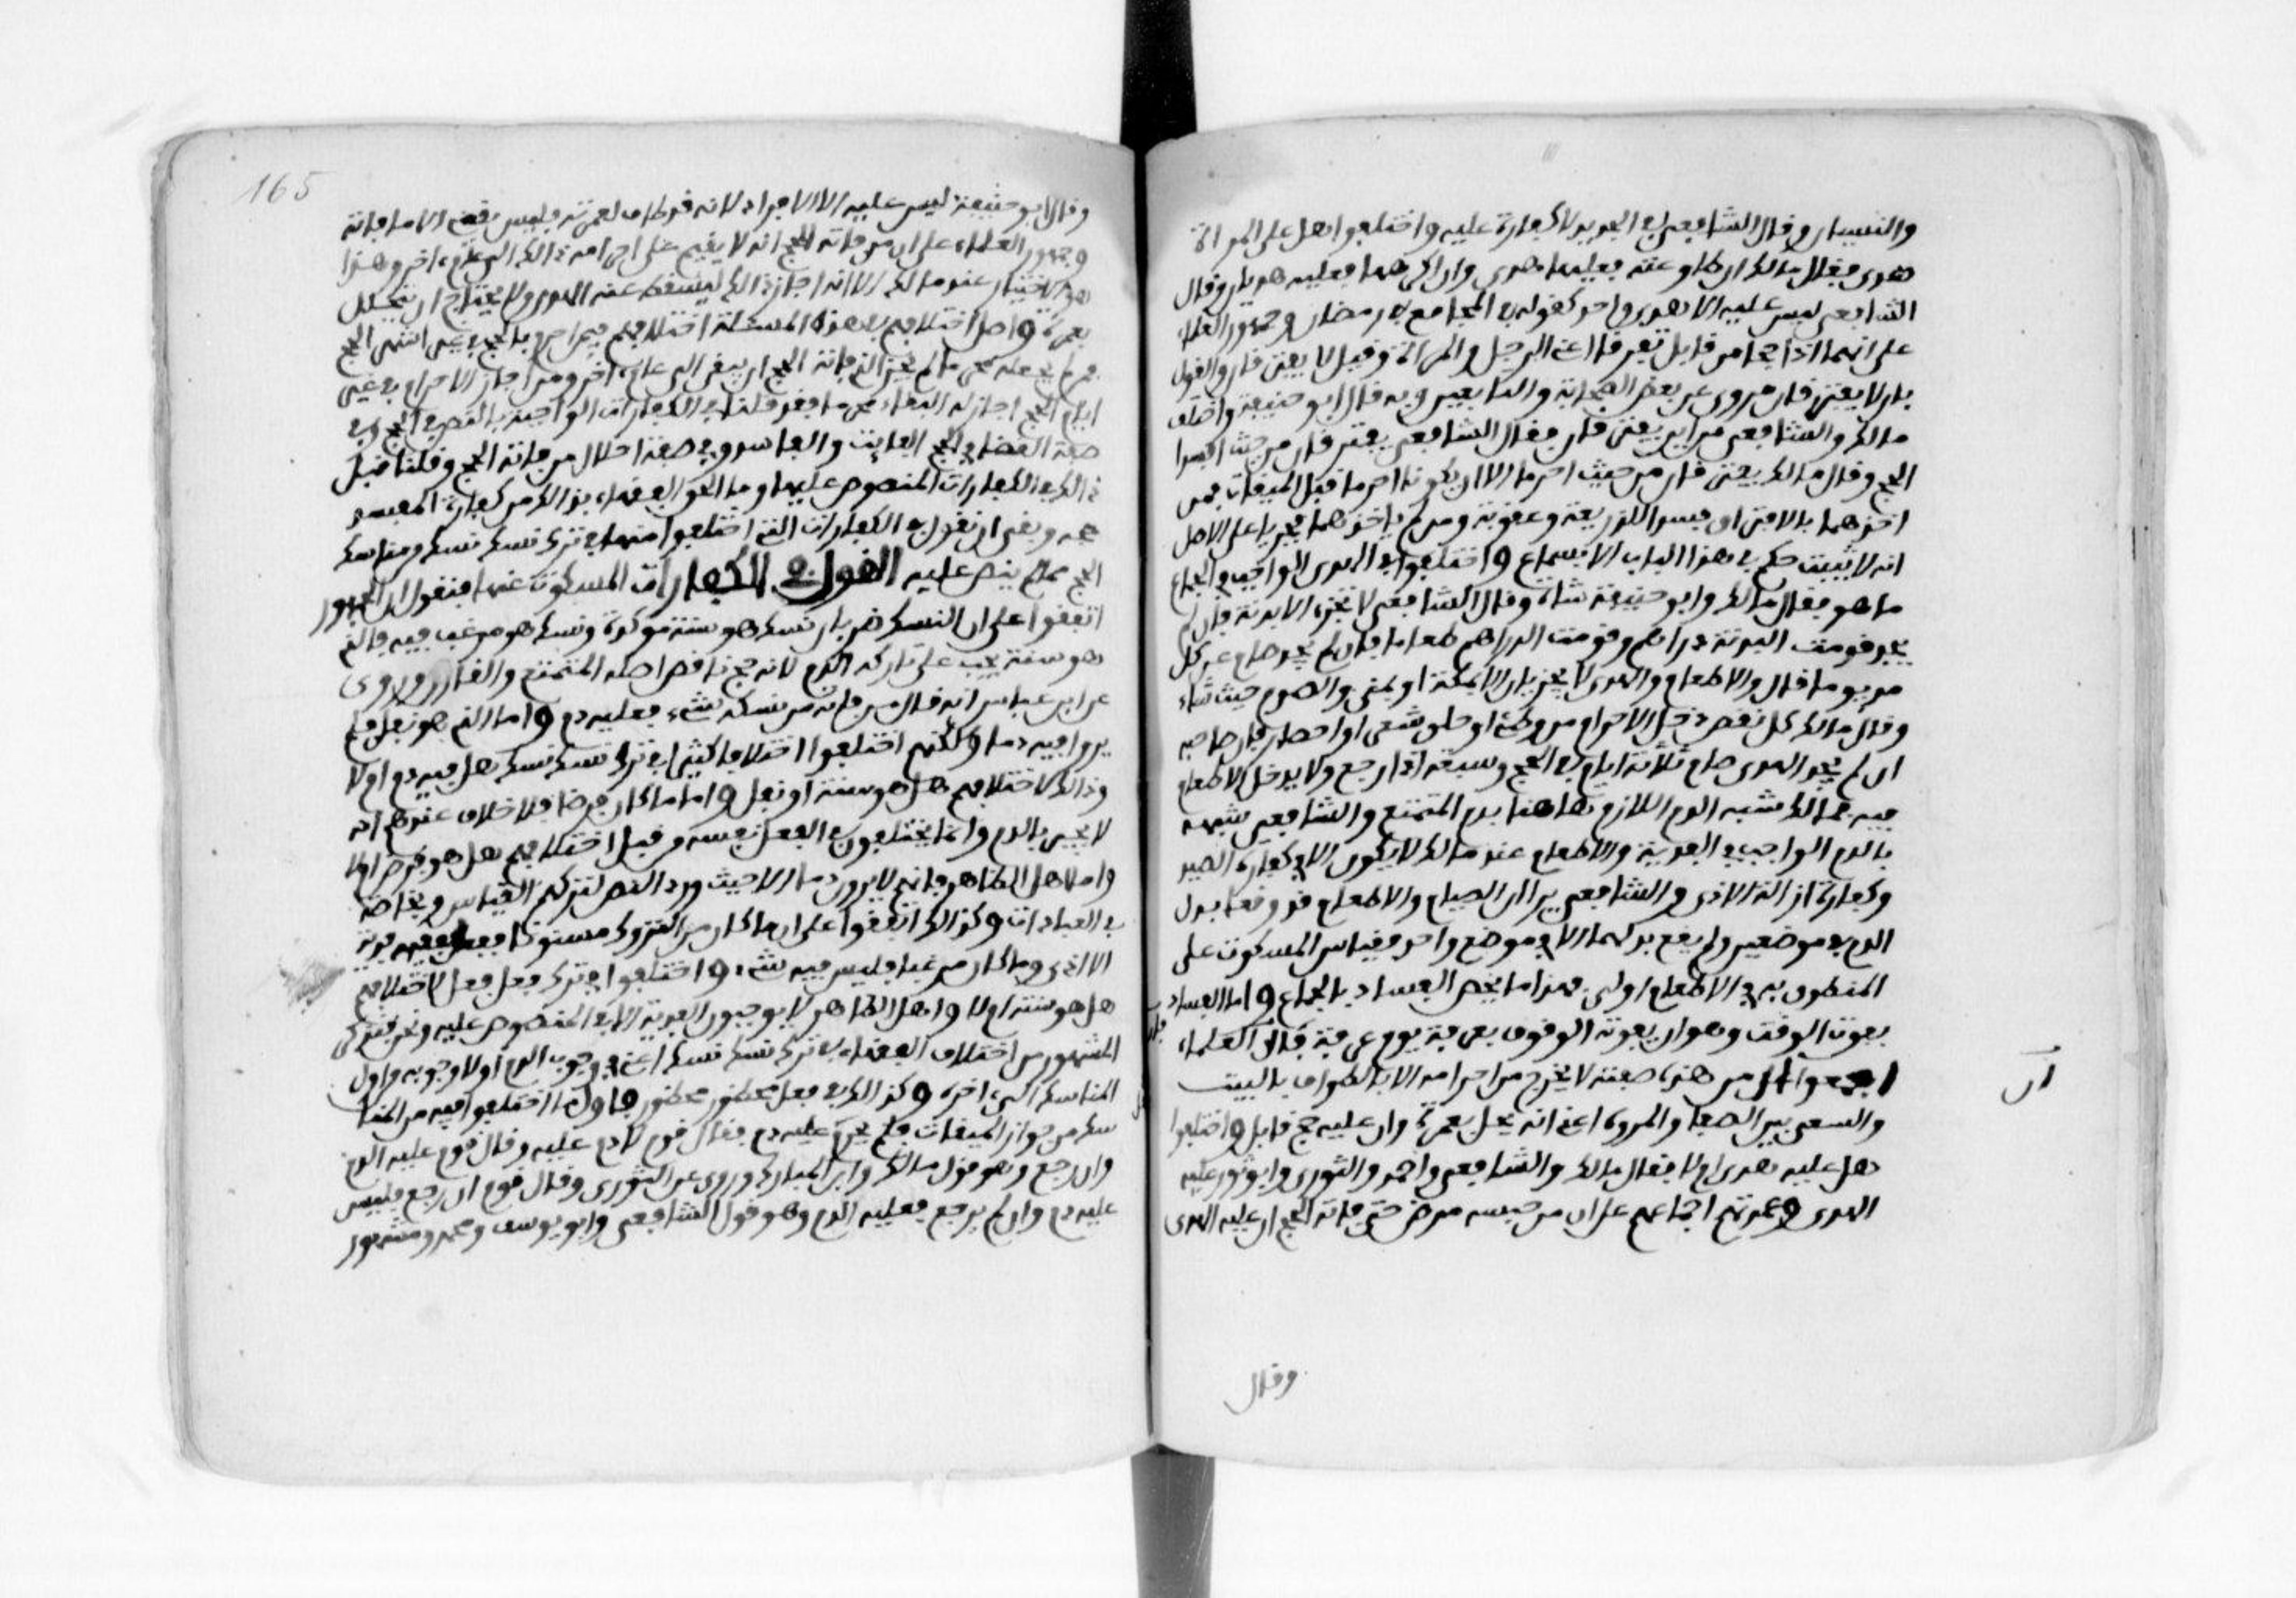 والنسيان وقال الشافعي في الجديد لا كفارة عليه واختلفوا هل على المرأة
هدي فقال مالك ان طاوعته فعليها هدي وان اكرهها فعليه هديان وقال
الشافعي ليس عليه الا هدي واحد كقوله في المجامع في رمضان وجمهور العلماء
على انهما اذا حجا من قابل تفرقا اعني الرجل والمرأة وقيل لا يفترقان والقول
بان لا يفترقان مروي عن بعض الصحابة والتابعين وبه قال ابو حنيفة واختلف
مالك والشافعي من اين يفترقان فقال الشافعي يفترقان من حيث افسدا
الحج وقال مالك يفترقان من حيث احرما الا ان يكونا احرما قبل الميقات فمن
اخذهما بالافتراق فسدا للذريعة وعقوبة ومن لم ياخذهما فجريا على الاصل
انه لا يثبت حكم في هذا الباب الا بسماع واختلفوا في الهدي الواجب في الجماع
ما هو فقال مالك وابو حنيفة شاة وقال الشافعي لا تجزه الا بدنة فان لم
يجد قومت البدنة دراهم وقومت الدراهم طعاما فان لم يجد صام عن كل
مد يوما قال والاطعام والهدي لا يجزيان الا بمكة او بمنى والصوم حيث شاء
وقال مالك كل نقص دخل الاحرام من وطئ او حلق شعر او احصار فان صاحبه
ان لم يجد الهدي صام ثلاثة ايام في الحج وسبعة اذا رجع ولا يدخل الاطعام
فيه فمالك شبه الدم اللازم هاهنا بدم المتمتع والشافعي شبهه
بالدم الواجب في الفدية والاطعام عند مالك لا يكون الا في كفارة الصيد
وكفارة ازالة الاذى والشافعي يرا ان الصيام والاطعام قد وقعا بدل
الدم في موضعين ولم يقع بدلهما الا في موضع واحد فقياس المسكوت على
المنطوق به في الاطعام اولى فهذا ما يخص الفساد بالجماع واما الفساد
بفوت الوقت وهو ان يفوته الوقوف بعرفة يوم عرفة فان العلماء
اجمعوا ان من هذه صفته لا يخرج من احرامه الا بالطواف بالبيت
ان
والسعي بين الصفا والمروة اعني انه يحل بعمرة وان عليه حج قابل واختلفوا
هل عليه هدي ام لا فقال مالك والشافعي واحمد والثوري وابو ثور عليه
الهدي وعمدتهم اجماعهم على ان من حبسه مرض حتى فاته الحج ان عليه الهدي
وقال
165
وقال ابو حنيفة ليس عليه الا
وجمهور العلماء على ان من فاته الحج انه لا يقيم على احرامه ذالك الى عام اخر وهذا
هو الاختيار عند مالك الا انه اجاز ذالك ليسقط عنه الهدي ولا يحتاج ان يتحلل
بعمرة واصل اختلافهم في هذه المسئلة اختلافهم فيمن احرم بالحج في غير اشهر الحج
فمن لم يجعله محرما لم يجز للذي فاته الحج ان يبقى الى عام اخر ومن اجاز الاحرام في غير
ايام الحج اجاز له البقاء محرما فقد قلنا في الكفارات الواجبة بالنص في الحج وفي
صفة القضاء في الحج الفايت والفاسد وفي صفة احلال من فاته الحج وقلنا قبل
ذالك في الكفارات المنصوص عليها وما الحق الفقهاء بذالك من كفارة المفسد
حجه وبقي ان نقول في الكفارات التي اختلفوا منها في ترك نسك نسك من مناسك
الحج مما لم ينص عليه القول في الكفارات المسكوت عنها فنقول ان الجمهور
اتفقوا على ان النسك ضربان نسك هو سنة موكدة ونسك هو مرغب فيه فالذي
هو سنة يجب على تاركه الدم لانه حج ناقص اصله المتمتع والقارن وروي
عن ابن عباس انه قال من فاته من نسكه شيء فعليه دم واما الذي هو نفل فلم
يروا فيه دما ولكنهم اختلفوا اختلافا كثيرا في ترك نسك نسك هل فيه دم ام لا
وذالك لاختلافهم هل هو سنة او نفل واما ما كان فرضا فلا خلاف عندهم انه
لا يجبر بالدم وانما يختلفون في الفعل نفسه من قبل اختلافهم هل هو فرض ام لا
واما اهل الظاهر فانهم لا يرون دما الا حيث ورد النص لتركهم القياس وبخاصة
في العبادات وكذالك اتفقوا على ان ما كان من المتروك مسنونا ففعل ففيه فدية
الاذى وما كان مرغبا فليس فيه شيء واختلفوا في ترك فعل فعل لاختلافهم
هل هو سنة ام لا واهل الظاهر لا يوجبون الفدية الا في المنصوص عليه ونحن نذكر
المشهور من اختلاف الفقهاء في ترك نسك نسك اعني في وجوب الدم اولا وجوبه من اول
المناسك الى اخره وكذالك في فعل محظور محظور فاول ما اختلفوا فيه من المنا
سك من جواز الميقات فلم يحرم عليه دم فقال قوم لا دم عليه وقال قوم عليه الدم
وان رجع وهو قول مالك وابن المبارك وروي عن الثوري وقال قوم ان رجع فليس
عليه دم وان لم يرجع فعليه الدم وهو قول الشافعي وابو يوسف ومحمد ومشهور